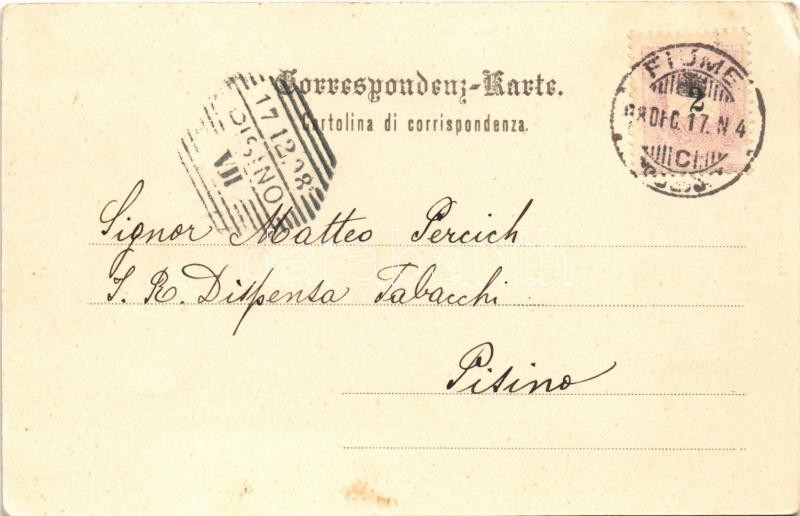 Correspondenz-Karte.
Cartolina di corrispondenza.
FIUME
2
98 DEC. 17. N 4
17 12 98
PISINO
VII
Signor Matteo Percich
I. R. Dispensa Tabacchi
Pisino